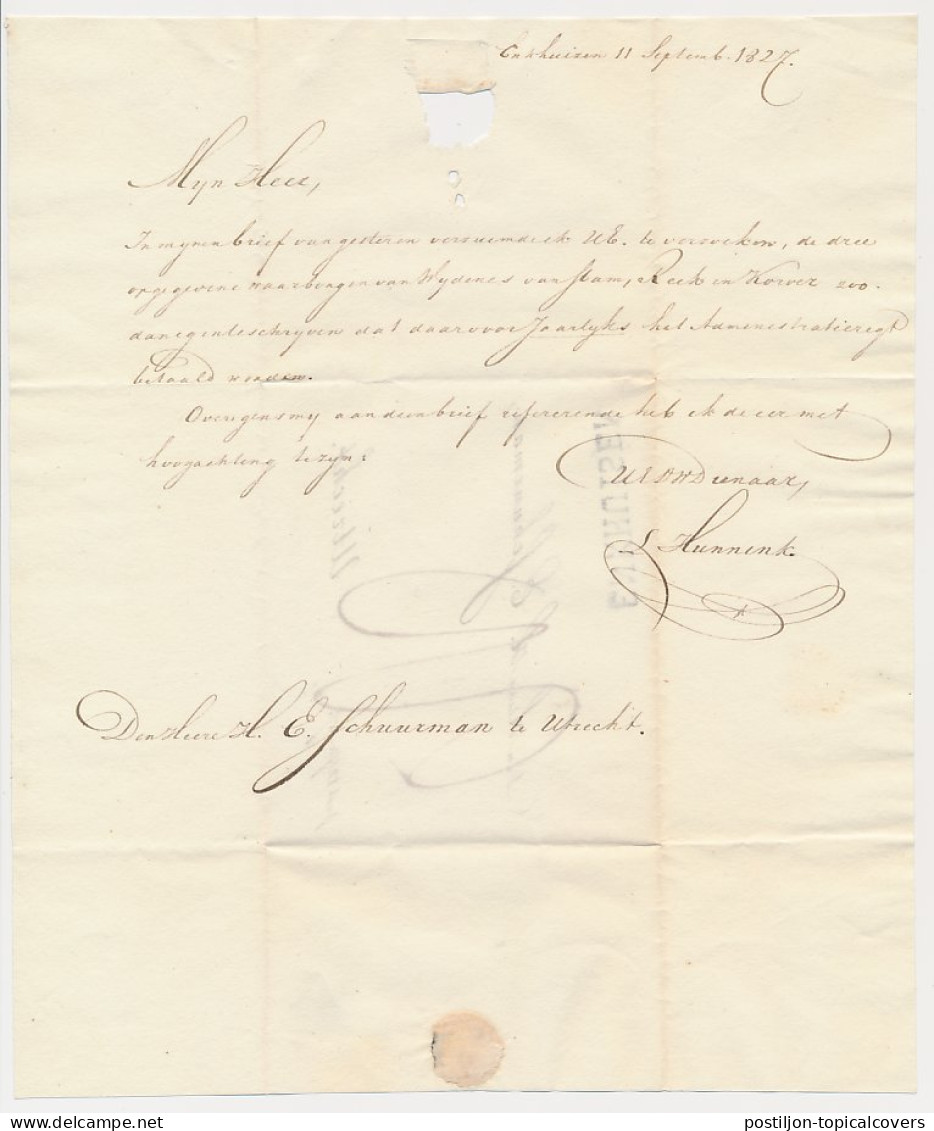 Enkhuizen 11 Septemb. 1827.
Myn Heer,
In mynen brief van gesteren verzuimde ik UE. te verzoeken, de drie
opgegevene waarborgen van Wydenes van Stam, Reek en Korver zoo-
danig in te schryven dat daarvoor Jaarlyks het Administratieregt
betaald worden.
Overigens my aan dien brief refererende heb ik de eer met
hoogachting te zyn:
UE DW Dienaar,
Hunnink
Den Heere H. E. Schuurman te Utrecht.
ENKHUISEN
Utrecht
postiljon-topicalcovers